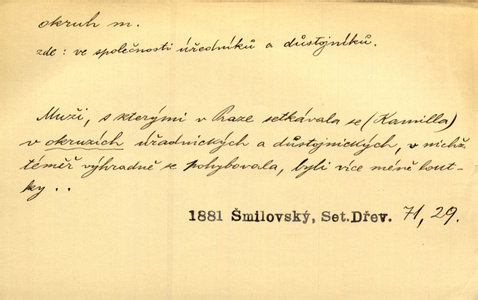 okruh m.
zde: ve společnosti úředníků a důstojníků.
Muži, s kterými v Praze setkávala se (Kamilla)
v okruzích úřadnických a důstojnických, v nichž
téměř výhradně se pohybovala, byli více méně lout-
ky..
1881 Šmilovský, Set.Dřev. 71, 29.